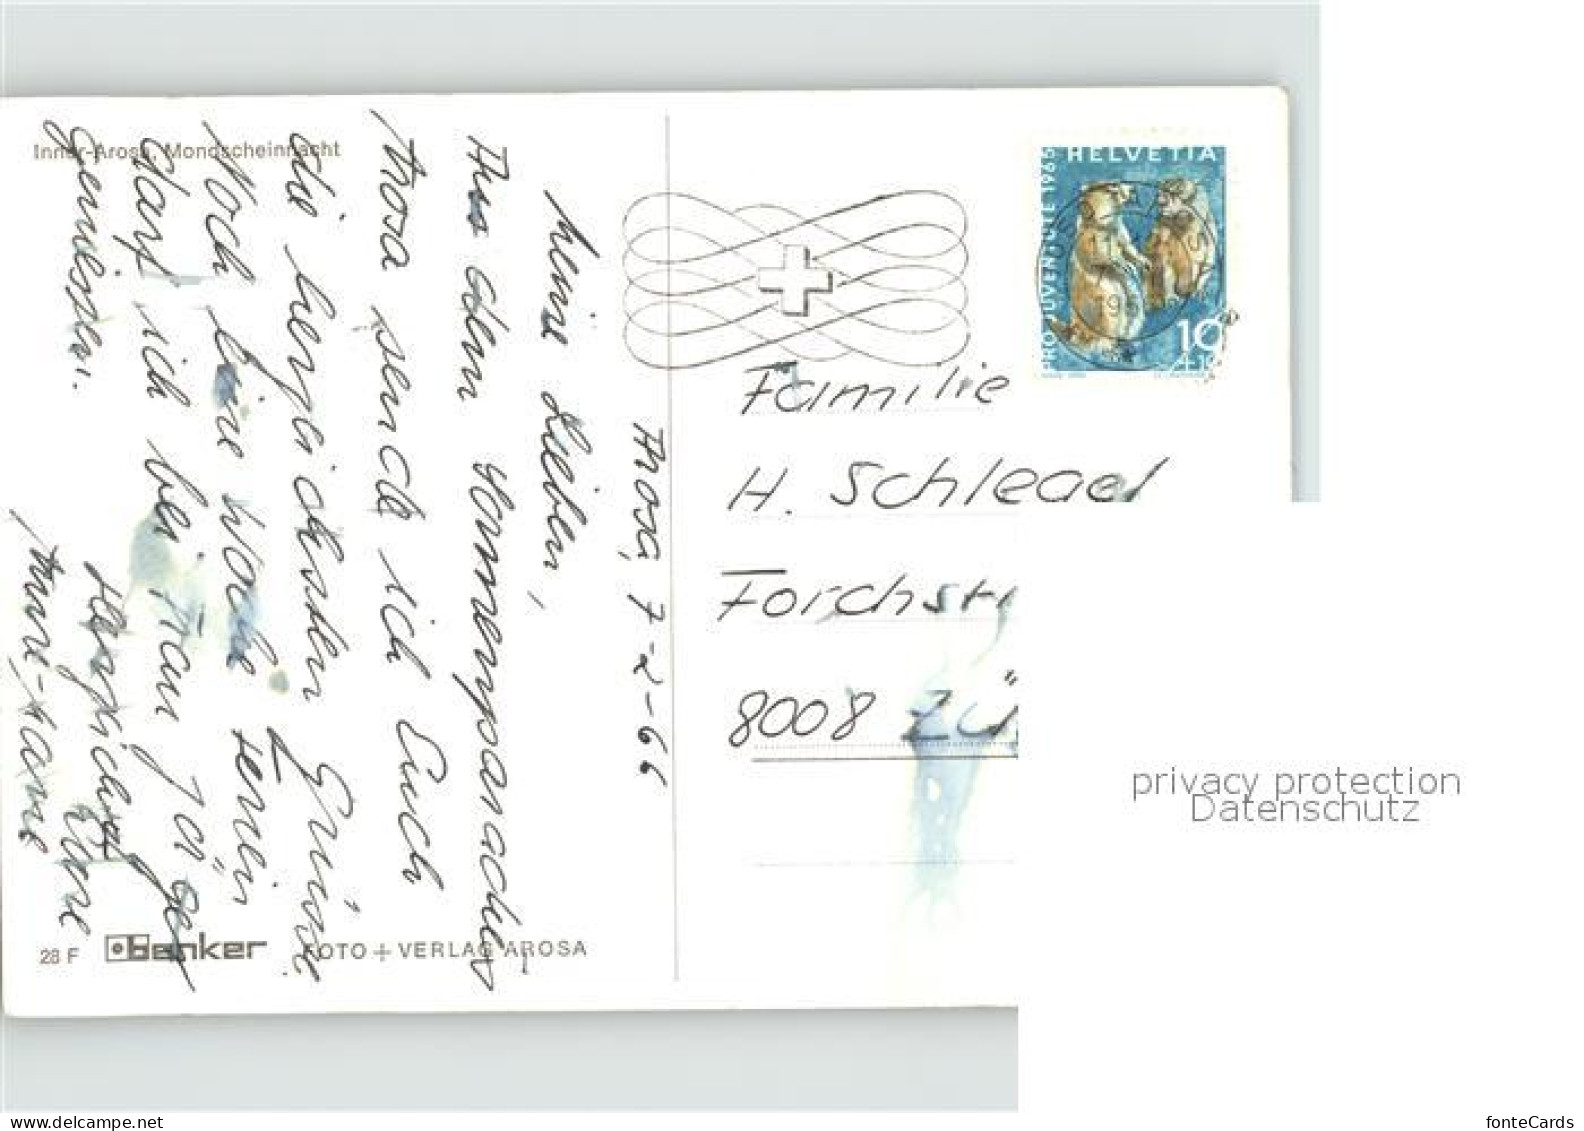 Inner-Arosa, Mondscheinnacht
HELVETIA
PRO JUVENTUTE 1966
10
Arosa, 7-2-66
Meine Lieben,
Aus dem
Arosa sende ich Euch
die herzlichsten Grüsse.
Noch eine Woche Ferien
darf ich bei Frau Jäger
geniessen.
Herzlichst
Eure
Anne-Marie
Familie
H. Schlegel
Forchstr
8008 Zü
28 F
benker FOTO + VERLAG AROSA
privacy protection
Datenschutz
fonteCards